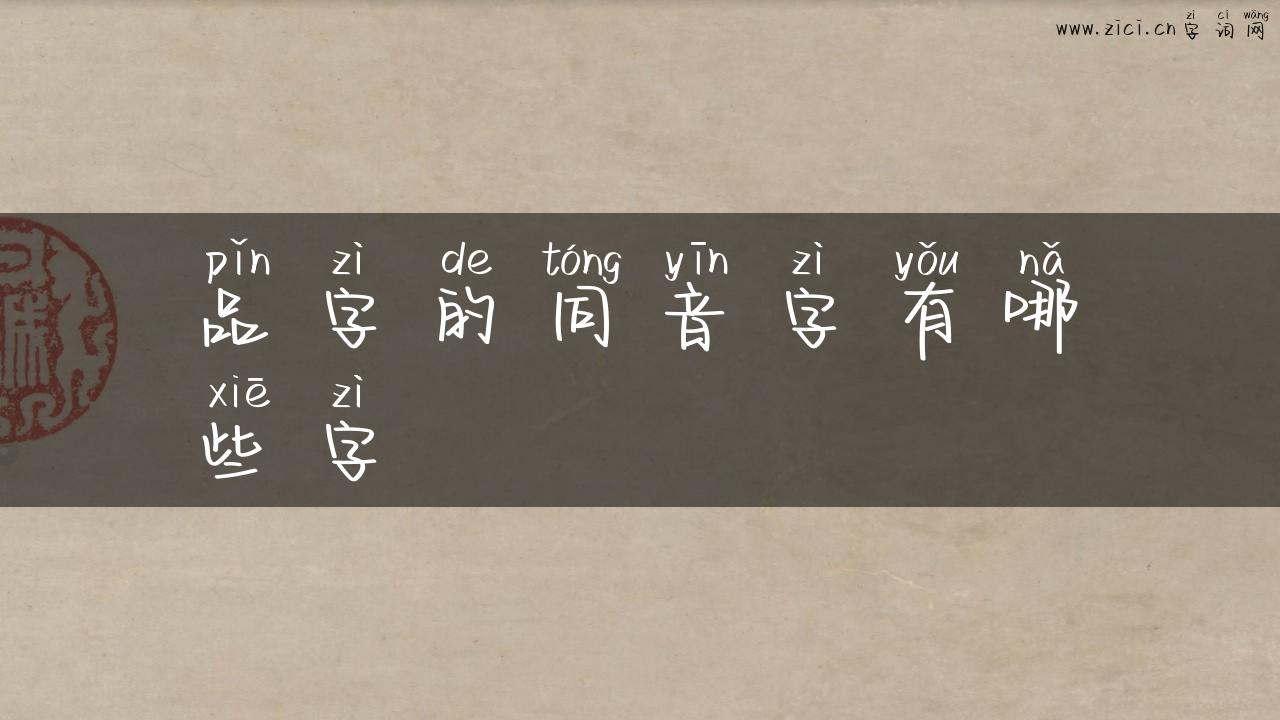 zì cí wǎng
www.zici.cn 字词网
pǐn zì de tóng yīn zì yǒu nǎ
品字的同音字有哪
xiē zì
些字